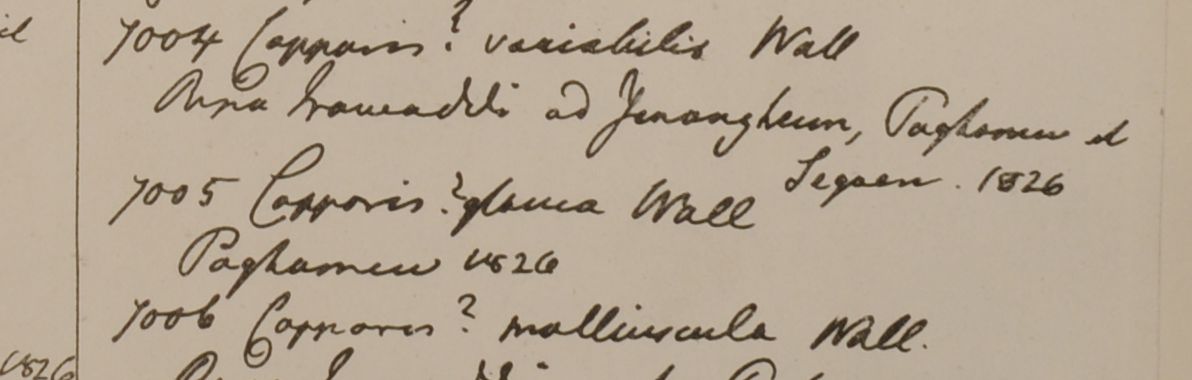 7004 Capparis? variabilis Wall
Ripa Irawaddi ad Jenangheum, Paghamew et
Segaen. 1826
7005 Capparis? glauca Wall
Paghamew 1826
7006 Capparis? molliuscula Wall.
1826